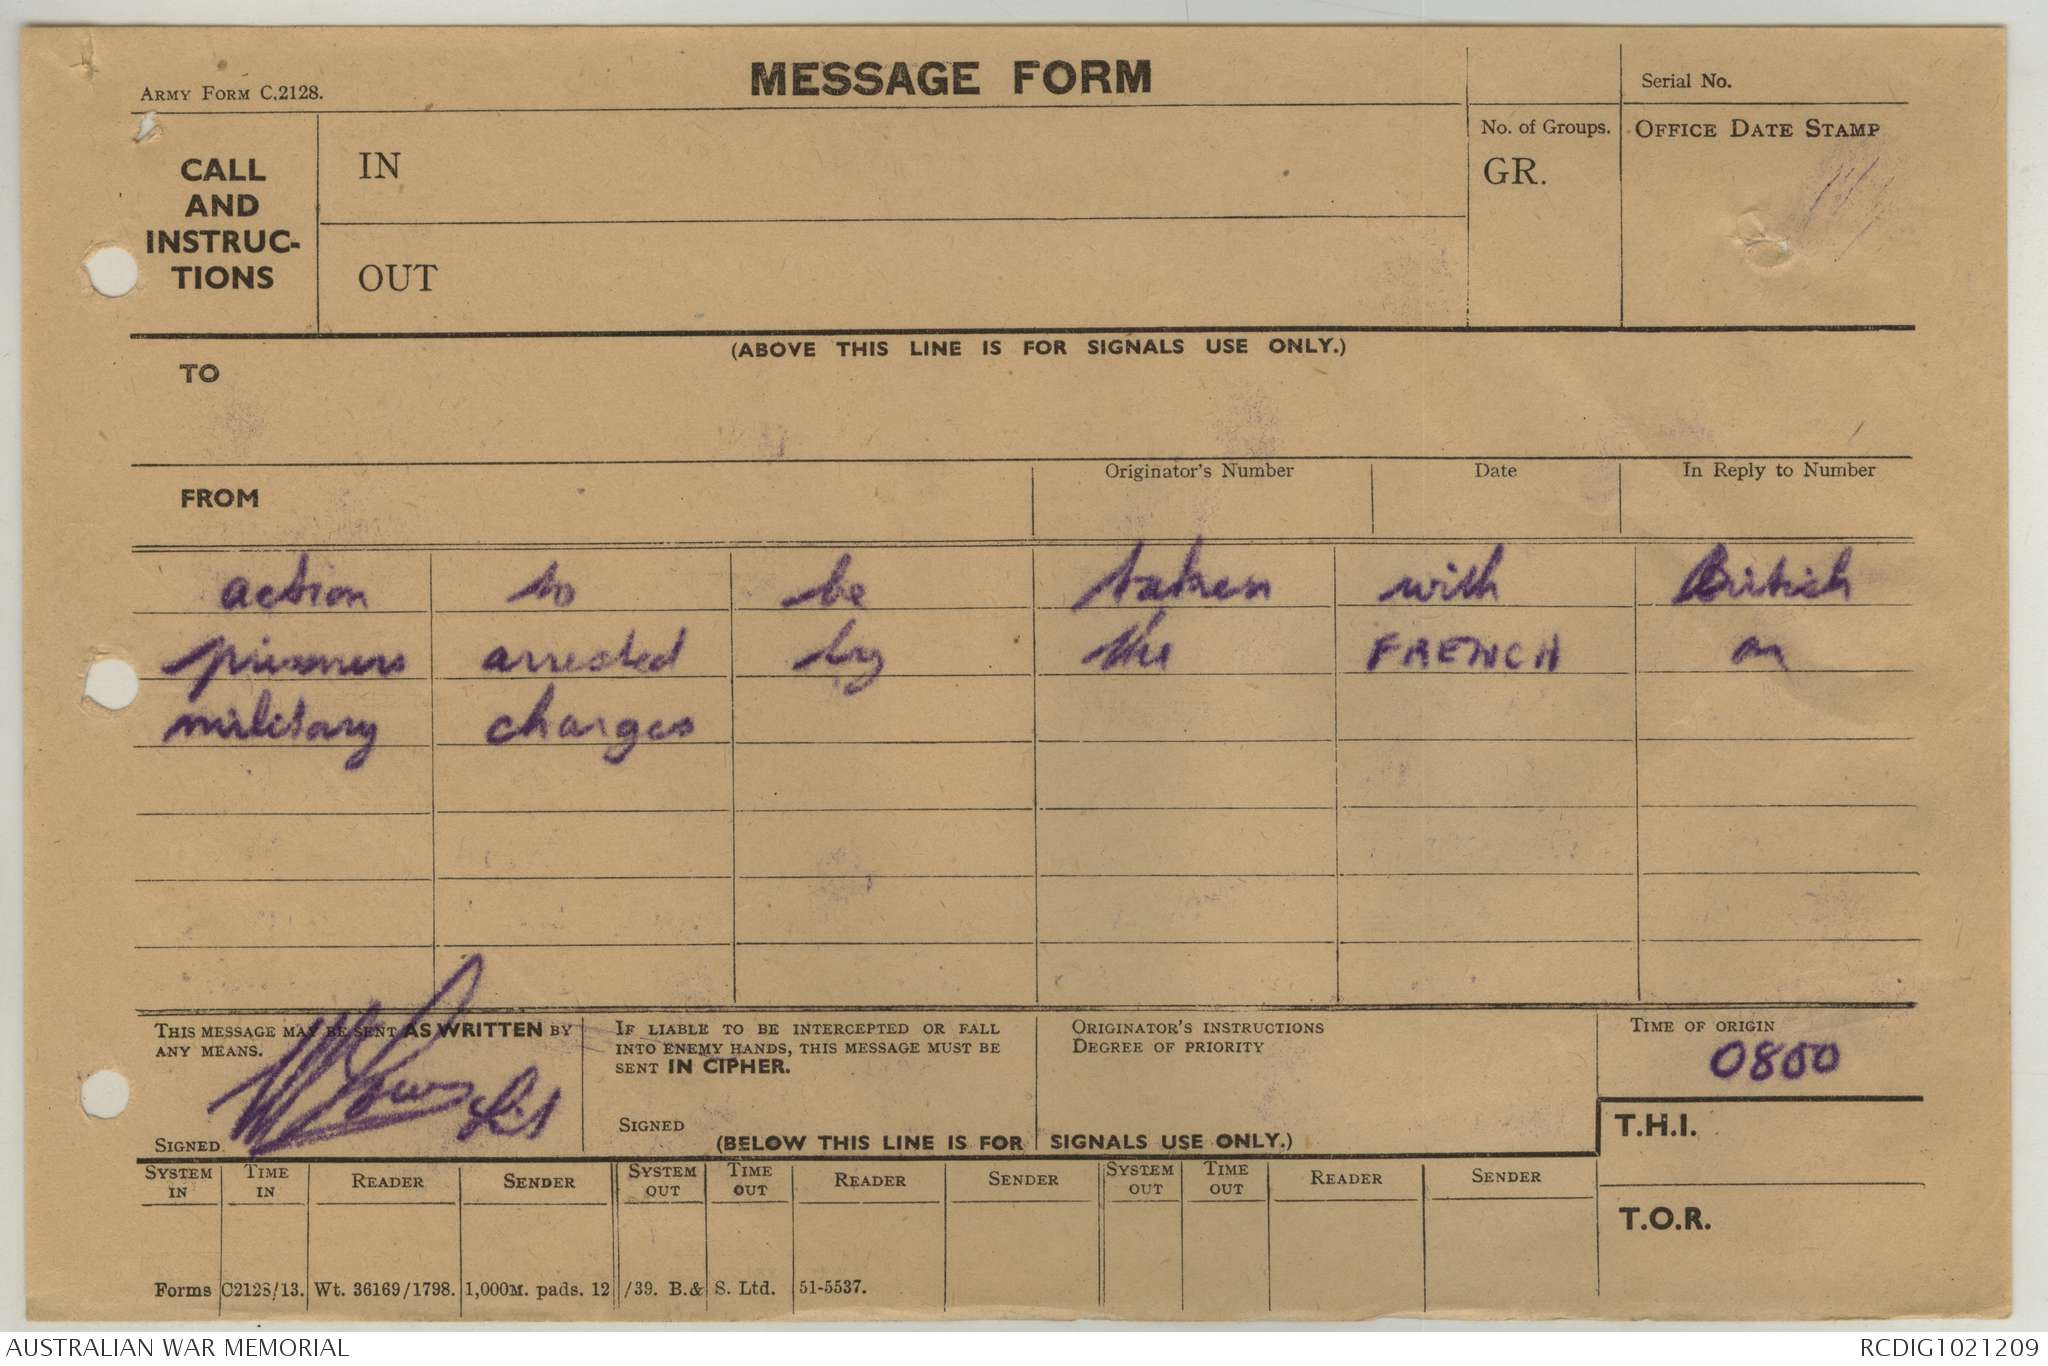 ARMY FORM C.2128.
MESSAGE FORM
Serial No.
CALL AND INSTRUC-TIONS
IN
OUT
No. of Groups.
GR.
OFFICE DATE STAMP
(ABOVE THIS LINE IS FOR SIGNALS USE ONLY.)
TO
FROM
Originator's Number
Date
In Reply to Number
action to be taken with British
prisoners arrested by the FRENCH on
military charges
THIS MESSAGE MAY BE SENT AS WRITTEN BY
ANY MEANS.
SIGNED
Lt
IF LIABLE TO BE INTERCEPTED OR FALL
INTO ENEMY HANDS, THIS MESSAGE MUST BE
SENT IN CIPHER.
SIGNED
ORIGINATOR'S INSTRUCTIONS
DEGREE OF PRIORITY
TIME OF ORIGIN
0800
T.H.I.
T.O.R.
(BELOW THIS LINE IS FOR SIGNALS USE ONLY.)
SYSTEM IN TIME IN READER SENDER SYSTEM OUT TIME OUT READER SENDER SYSTEM OUT TIME OUT READER SENDER
Forms C2128/13. Wt. 36169/1798. 1,000M. pads. 12/39. B.& S. Ltd. 51-5537.
AUSTRALIAN WAR MEMORIAL
RCDIG1021209